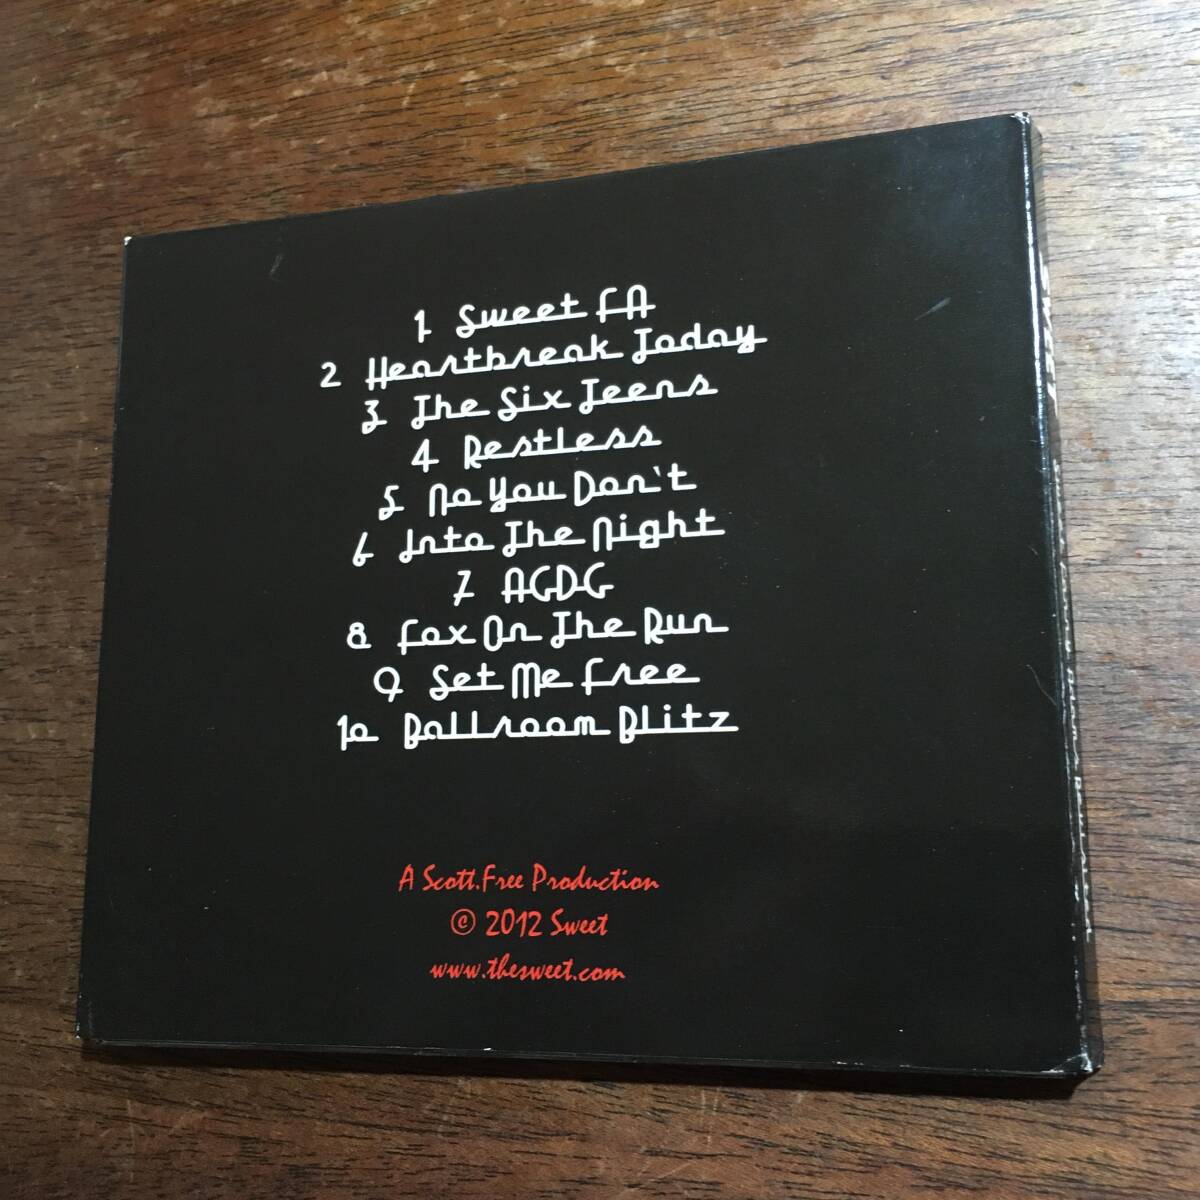 1 Sweet FA
2 Heartbreak Today
3 The Six Teens
4 Restless
5 No You Don't
6 Into The Night
7 ACDC
8 Fox On The Run
9 Set Me Free
10 Ballroom Blitz
A Scott.Free Production
© 2012 Sweet
www.thesweet.com